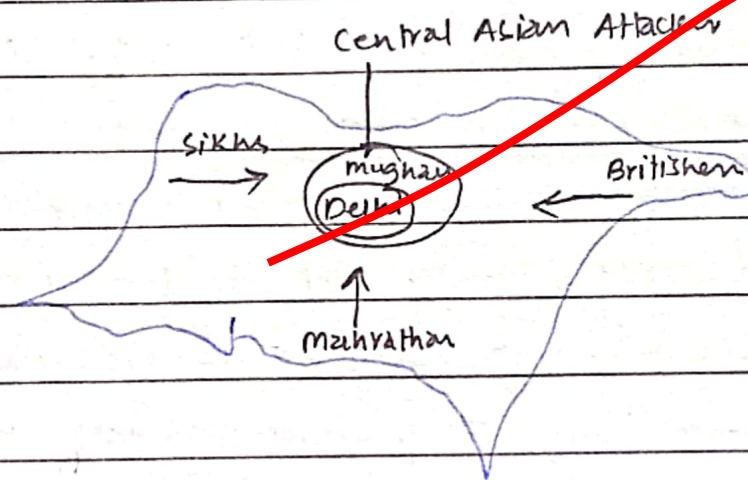 Central Asian Attacker
Sikhs
Mughals
Delhi
Britishers
Mahrathan